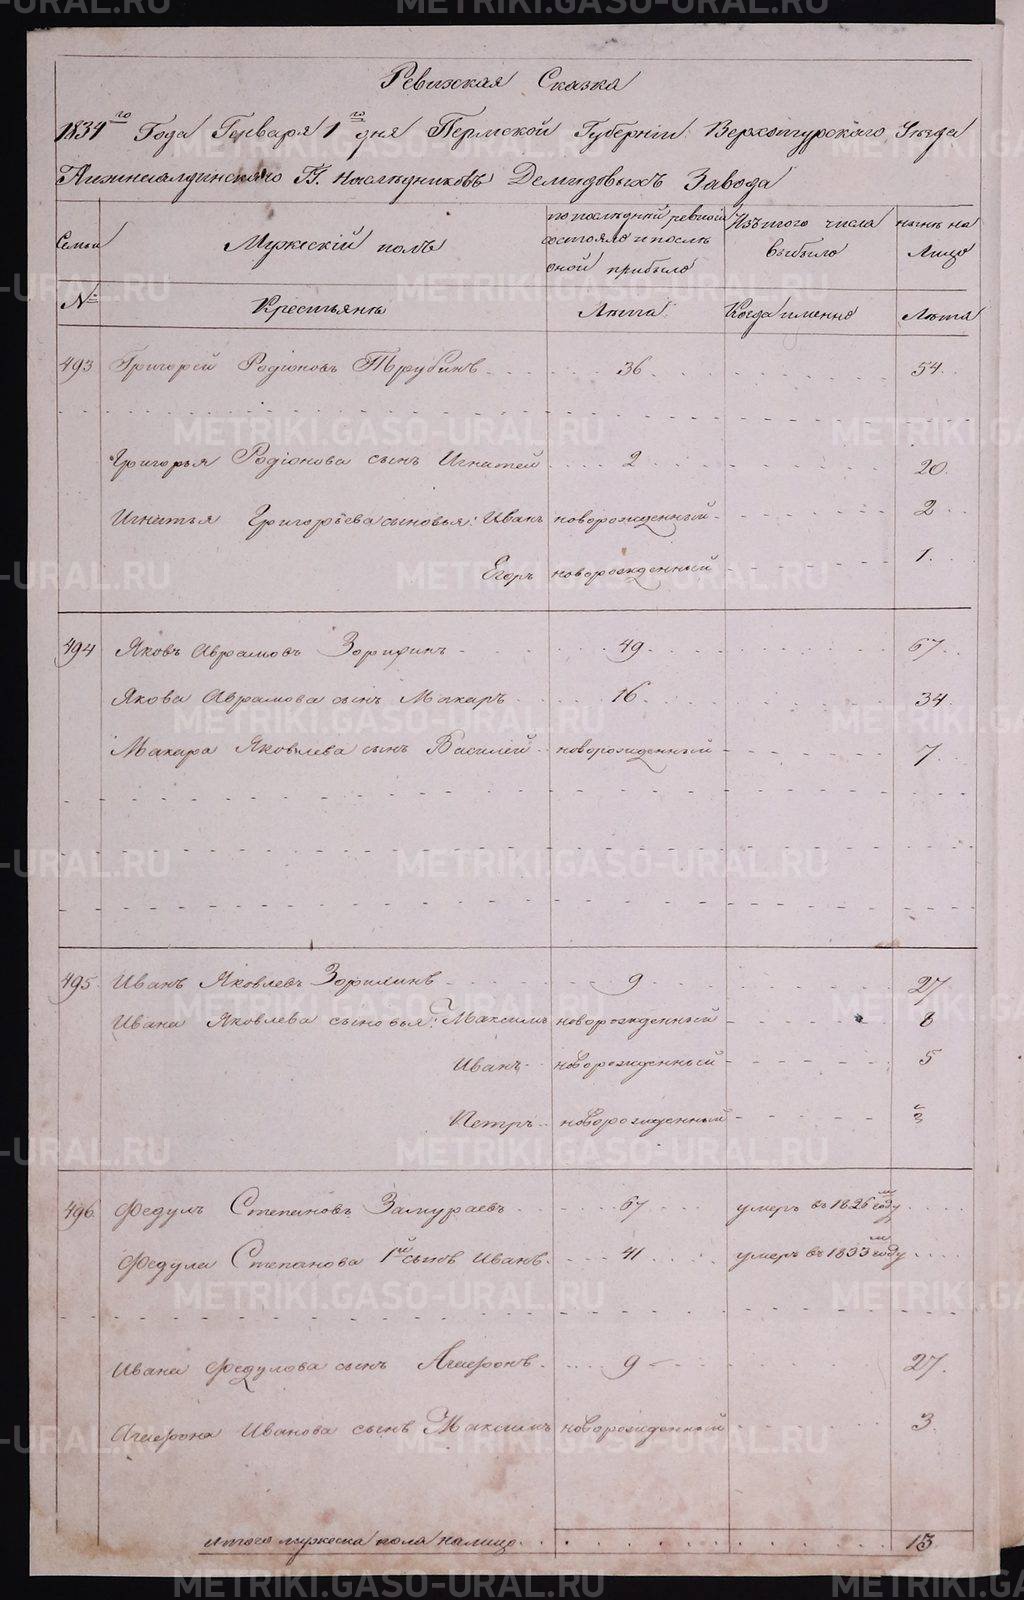 Ревизская Сказка
1834го Года Генваря 1го дня Пермской Губернiи Верхотурскаго Уезда
Нижнесалдинскаго Гг. Наследниковъ Демидовыхъ Завода
Семьи
Мужескiй полъ
по последней ревизiи состояло и после оной прибыло
Изъ того числа выбыло
ныне на Лицо
№
Крестьяне
Лета
Когда именно
Лета
493 Григорей Родiоновъ Трубинъ 36 54
Григорья Родiонова сынъ Игнатей 2 20
Игнатья Григорьева сыновья: Иванъ новорожденный 2
Егоръ новорожденный 1
494 Яковъ Аврамовъ 49 67
Якова Аврамова сынъ Макаръ 16 34
Макара Яковлева сынъ Василей новорожденный 7
495 Иванъ Яковлевъ 9 27
Ивана Яковлева сыновья: Максимъ новорожденный 8
Иванъ новорожденный 5
Петръ новорожденный 3
496 Федулъ Степановъ Замураевъ 67 умеръ въ 1826м году
Федула Степанова 1й сынъ Иванъ 41 умеръ въ 1833м году
Ивана Федулова сынъ Агафонъ 9 27
Агафона Иванова сынъ Максимъ новорожденный 3
итого мужеска пола налицо 13
METRIKI.GASO-URAL.RU